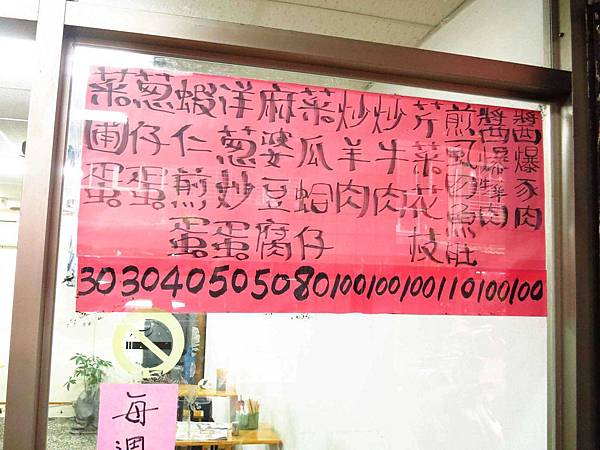 菜圃蛋
葱仔蛋
蝦仁煎蛋
洋葱炒蛋
麻婆豆腐
菜瓜蛤仔
炒羊肉
炒牛肉
芹菜花枝
煎虱目魚肚
醬爆肉
醬爆豕肉
30 30 40 50 50 80 100 100 100 110 100 100
每週